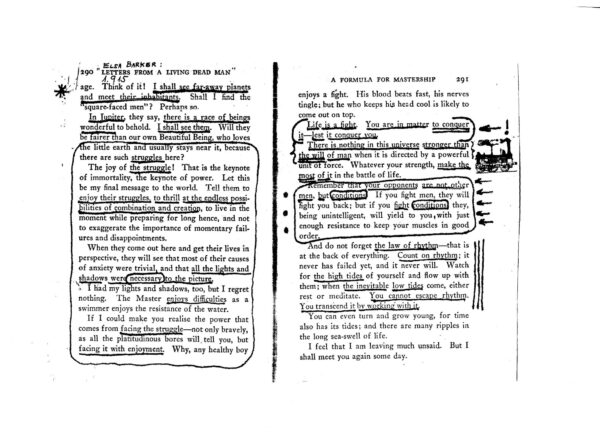 ELSA BARKER:
290 "LETTERS FROM A LIVING DEAD MAN"
1915
age. Think of it! I shall see far-away planets
and meet their inhabitants. Shall I find the
"square-faced men"? Perhaps so.
In Jupiter, they say, there is a race of beings
wonderful to behold. I shall see them. Will they
be fairer than our own Beautiful Being, who loves
the little earth and usually stays near it, because
there are such struggles here?
The joy of the struggle! That is the keynote
of immortality, the keynote of power. Let this
be my final message to the world. Tell them to
enjoy their struggles, to thrill at the endless possi-
bilities of combination and creation, to live in the
moment while preparing for long hence, and not
to exaggerate the importance of momentary fail-
ures and disappointments.
When they come out here and get their lives in
perspective, they will see that most of their causes
of anxiety were trivial, and that all the lights and
shadows were necessary to the picture.
I had my lights and shadows, too, but I regret
nothing. The Master enjoys difficulties as a
swimmer enjoys the resistance of the water.
If I could make you realise the power that
comes from facing the struggle—not only bravely,
as all the platitudinous bores will tell you, but
facing it with enjoyment. Why, any healthy boy
A FORMULA FOR MASTERSHIP 291
enjoys a fight. His blood beats fast, his nerves
tingle; but he who keeps his head cool is likely to
come out on top.
Life is a fight. You are in matter to conquer
it—lest it conquer you.
There is nothing in this universe stronger than
the will of man when it is directed by a powerful
unit of force. Whatever your strength, make the
most of it in the battle of life.
Remember that your opponents are not other
men, but conditions. If you fight men, they will
fight you back; but if you fight conditions, they,
being unintelligent, will yield to you, with just
enough resistance to keep your muscles in good
order.
And do not forget the law of rhythm—that is
at the back of everything. Count on rhythm; it
never has failed yet, and it never will. Watch
for the high tides of yourself and flow up with
them; when the inevitable low tides come, either
rest or meditate. You cannot escape rhythm.
You transcend it by working with it.
You can even turn and grow young, for time
also has its tides; and there are many ripples in
the long sea-swell of life.
I feel that I am leaving much unsaid. But I
shall meet you again some day.